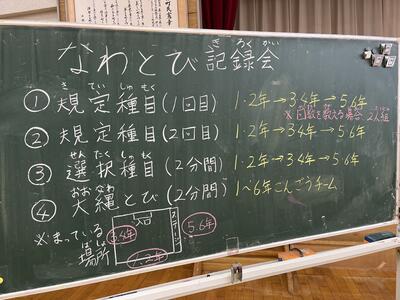 なわとび記録会
きろくかい
きていしゅもく
①規定種目(1回目) 1・2年→3・4年→5・6年
※回数を数える場合 2人組
②規定種目(2回目) 1・2年→3・4年→5・6年
せんたくしゅもく
③選択種目(2分間) 1・2年→3・4年→5・6年
おおなわ
④大縄とび(2分間) 1~6年こんごうチーム
※まっている場所
ばしょ
入口
ステージ
3.4年
5.6年
1.2年